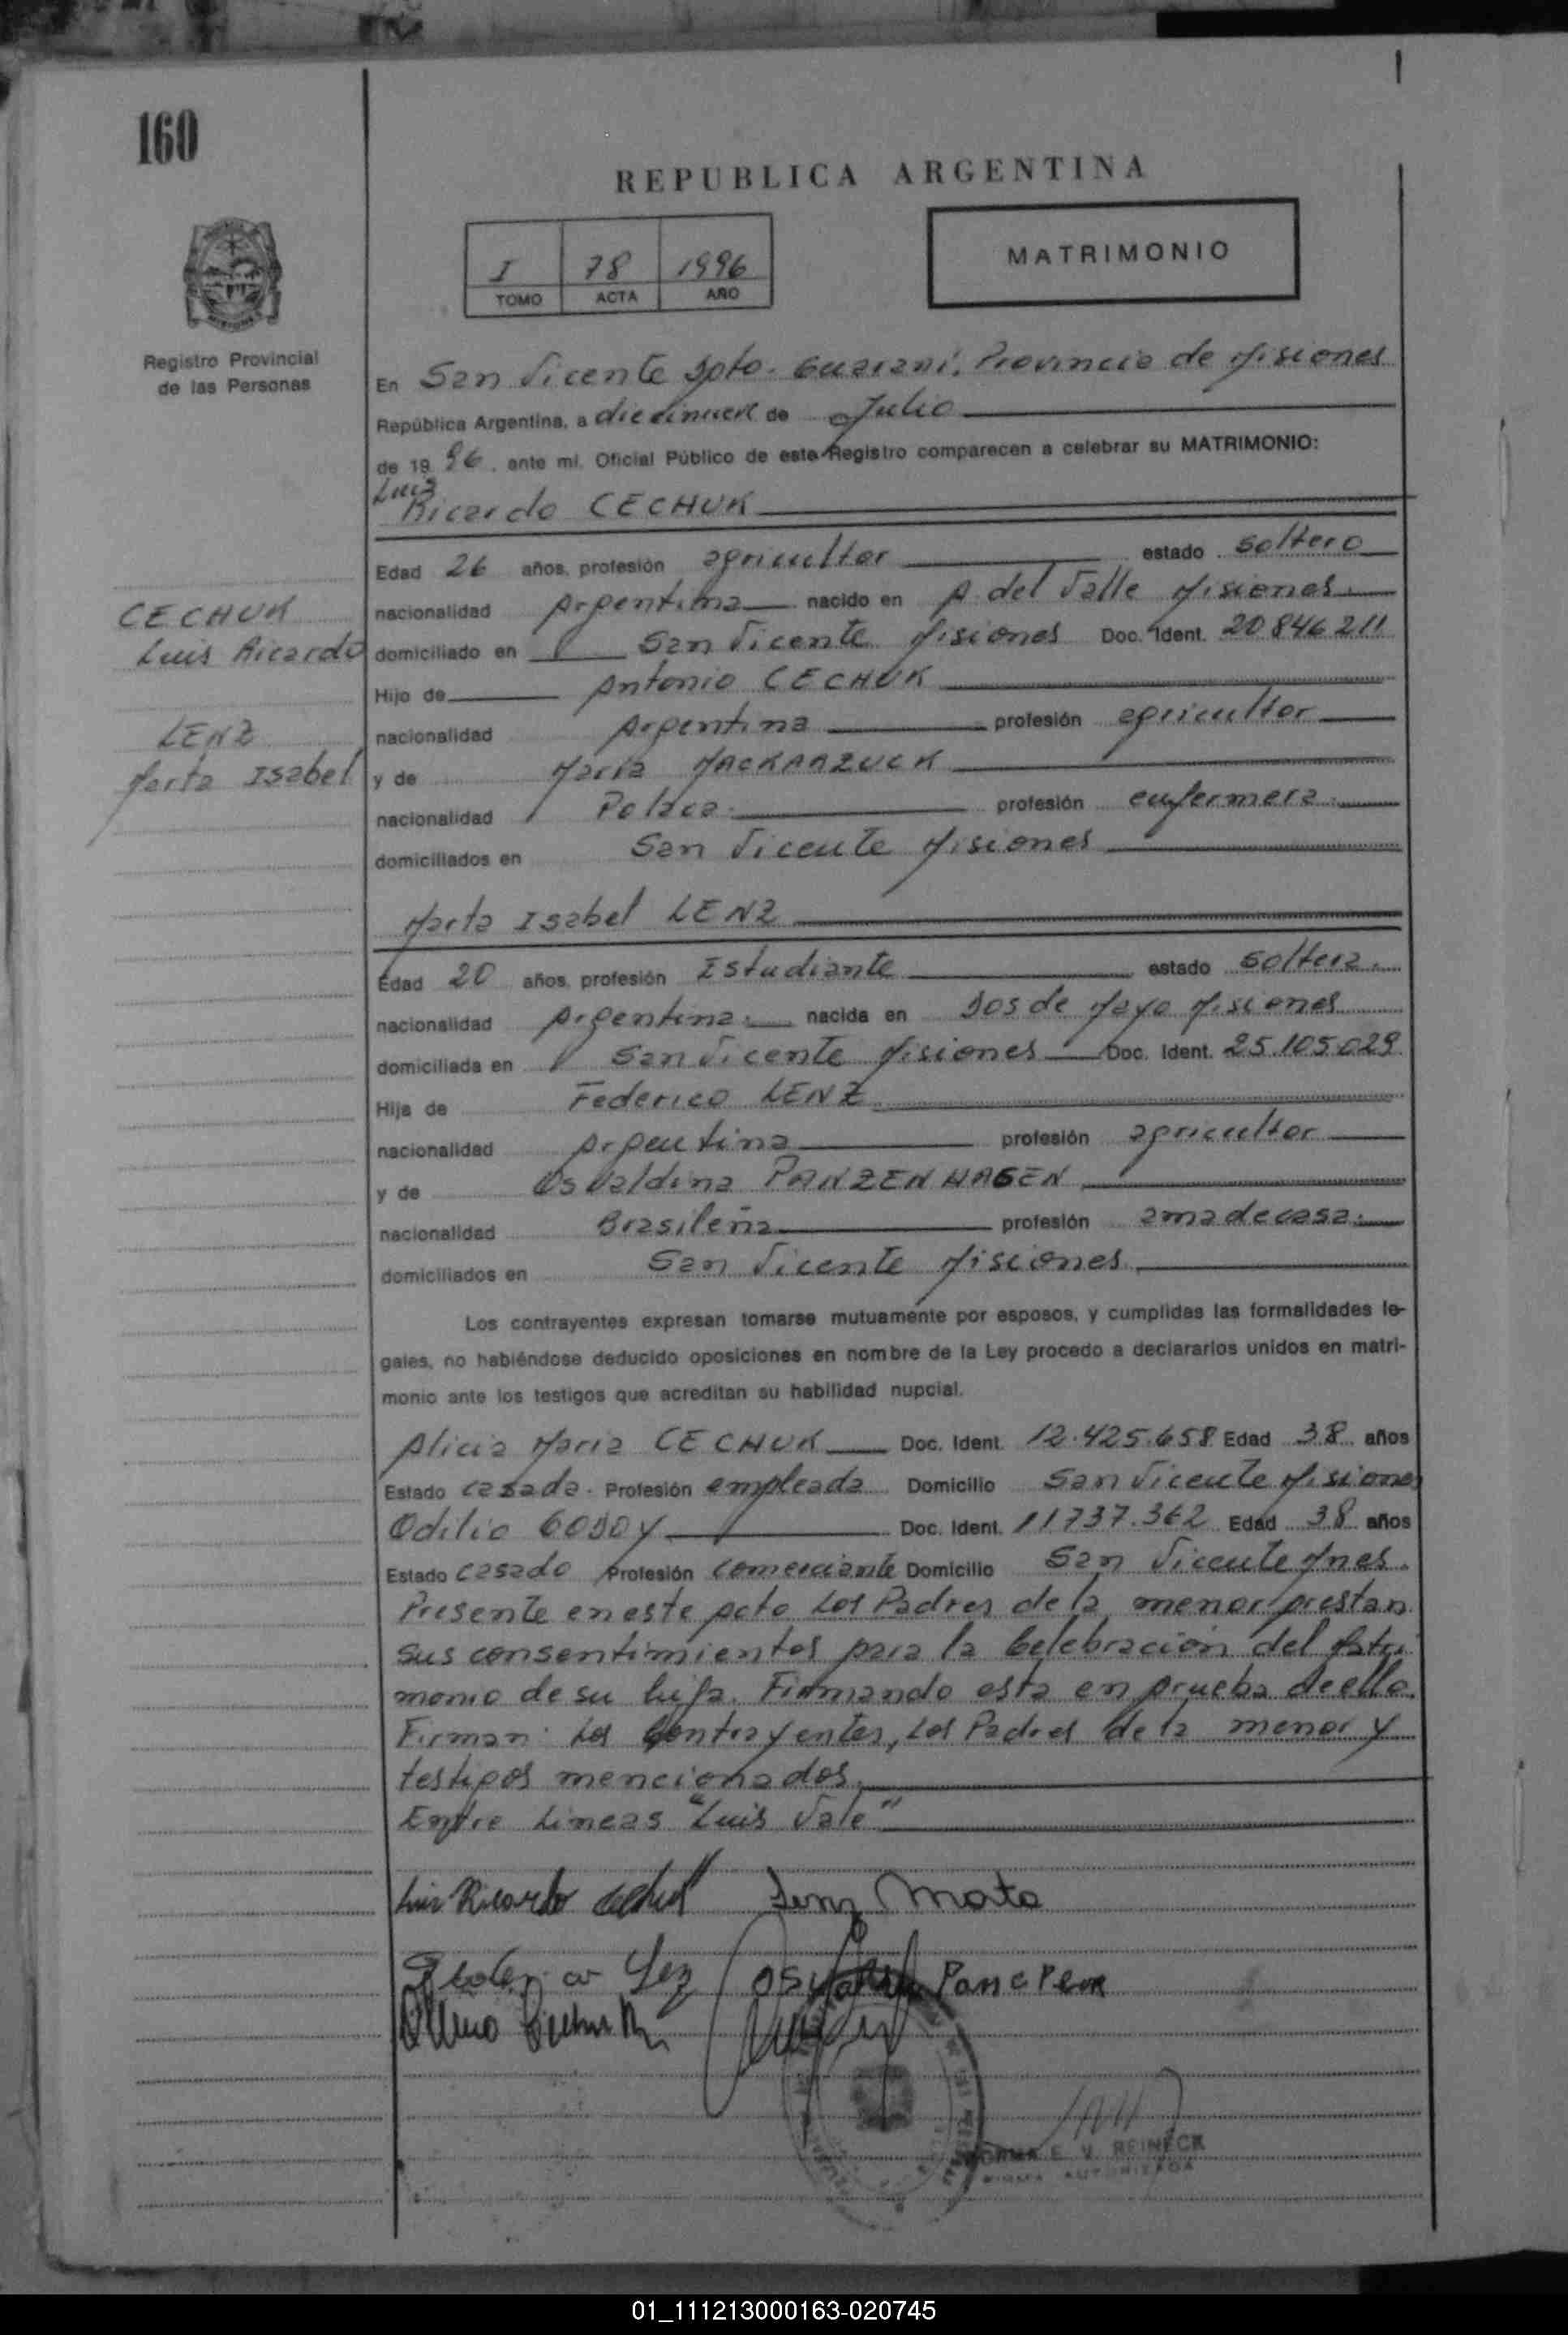 160
REPUBLICA ARGENTINA
I 78 1996
TOMO ACTA AÑO
MATRIMONIO
Registro Provincial
de las Personas
En San Vicente Dpto. Guaraní. Provincia de Misiones
República Argentina, a diecinueve de Julio
de 19 96. ante mi. Oficial Público de este Registro comparecen a celebrar su MATRIMONIO:
Luis
Ricardo CECHUK
Edad 26 años, profesión agricultor estado soltero
nacionalidad Argentina nacido en A. del Valle Misiones.
CECHUK
Luis Ricardo
domiciliado en San Vicente Misiones Doc. Ident. 20846211
Hijo de Antonio CECHUK
nacionalidad Argentina profesión agricultor
LENZ
Marta Isabel
y de María
nacionalidad Polaca. profesión enfermera.
domiciliados en San Vicente Misiones
Marta Isabel LENZ
Edad 20 años, profesión Estudiante estado soltera.
nacionalidad Argentina. nacida en Dos de Mayo Misiones
domiciliada en San Vicente Misiones Doc. Ident. 25.105.029
Hija de Federico LENZ
nacionalidad Argentina profesión agricultor
y de Osvaldina PANZENHAGEN
nacionalidad Brasileña profesión ama de casa.
domiciliados en San Vicente Misiones
Los contrayentes expresan tomarse mutuamente por esposos, y cumplidas las formalidades le-
gales, no habiéndose deducido oposiciones en nombre de la Ley procedo a declararlos unidos en matri-
monio ante los testigos que acreditan su habilidad nupcial.
Alicia Maria CECHUK Doc. Ident. 12.425.658 Edad 38 años
Estado casada. Profesión empleada Domicilio San Vicente Misiones
Odilio GODOY Doc. Ident. 11737.362 Edad 38 años
Estado casado Profesión comerciante Domicilio San Vicente Mnes.
Presente en este acto Los Padres de la menor prestan
sus consentimientos para la Celebración del Matri
monio de su hija. Firmando esta en prueba de ello.
Firman: Los Contrayentes, Los Padres de la menor y
testigos mencionados.
Entre Lineas "Luis Vale"
Luis Ricardo Cechuk Lenz Marta
E. V. REINECK
FIRMA AUTORIZADA
01_111213000163-020745